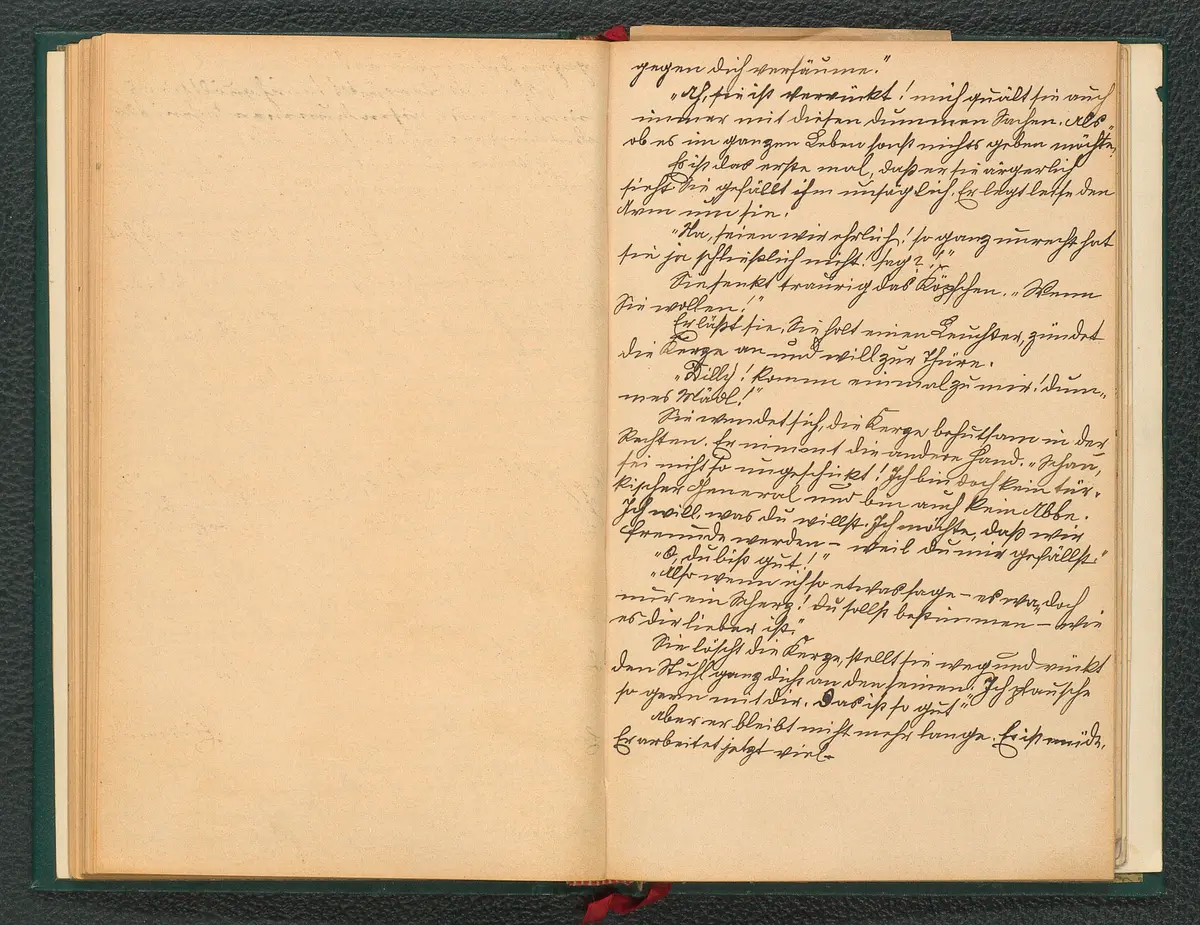 gegen dich versäume."
„Ah, sie ist verrückt! mich quält sie auch
immer mit diesen dummen Sachen. Als
ob es im ganzen Leben sonst nichts geben möchte."
Es ist das erste mal, daß er sie ärgerlich
sieht. Sie gefällt ihm unsäglich. Er legt leise den
Arm um sie.
„Na, seien wir ehrlich! so ganz unrecht hat
sie ja schließlich nicht. sag?!"
Sie senkt traurig das Köpfchen. „Wenn
Sie wollen!"
Er läßt sie. Sie holt einen Leuchter, zündet
die Kerze an und will zur Thüre.
„Lilly! komm einmal zu mir! dum-
mes Mädl!"
Sie wendet sich, die Kerze behutsam in der
Rechten. Er nimmt die andere Hand. „Schau,
sei nicht so ungeschickt! Ich bin doch kein tür-
kischer General und bin auch kein Abbe.
Ich will, was du willst. Ich möchte, daß wir
Freunde werden – weil du mir gefällst."
„O, du bist gut!"
„Also wenn ich so etwas sage – es war doch
nur ein Scherz! du sollst bestimmen – wie
es dir lieber ist."
Sie löscht die Kerze, stellt sie weg und rückt
den Stuhl ganz dicht an den seinen. „Ich plausche
so gern mit dir. Das ist so gut"
Aber er bleibt nicht mehr lange. Er ist müde.
Er arbeitet jetzt viel.